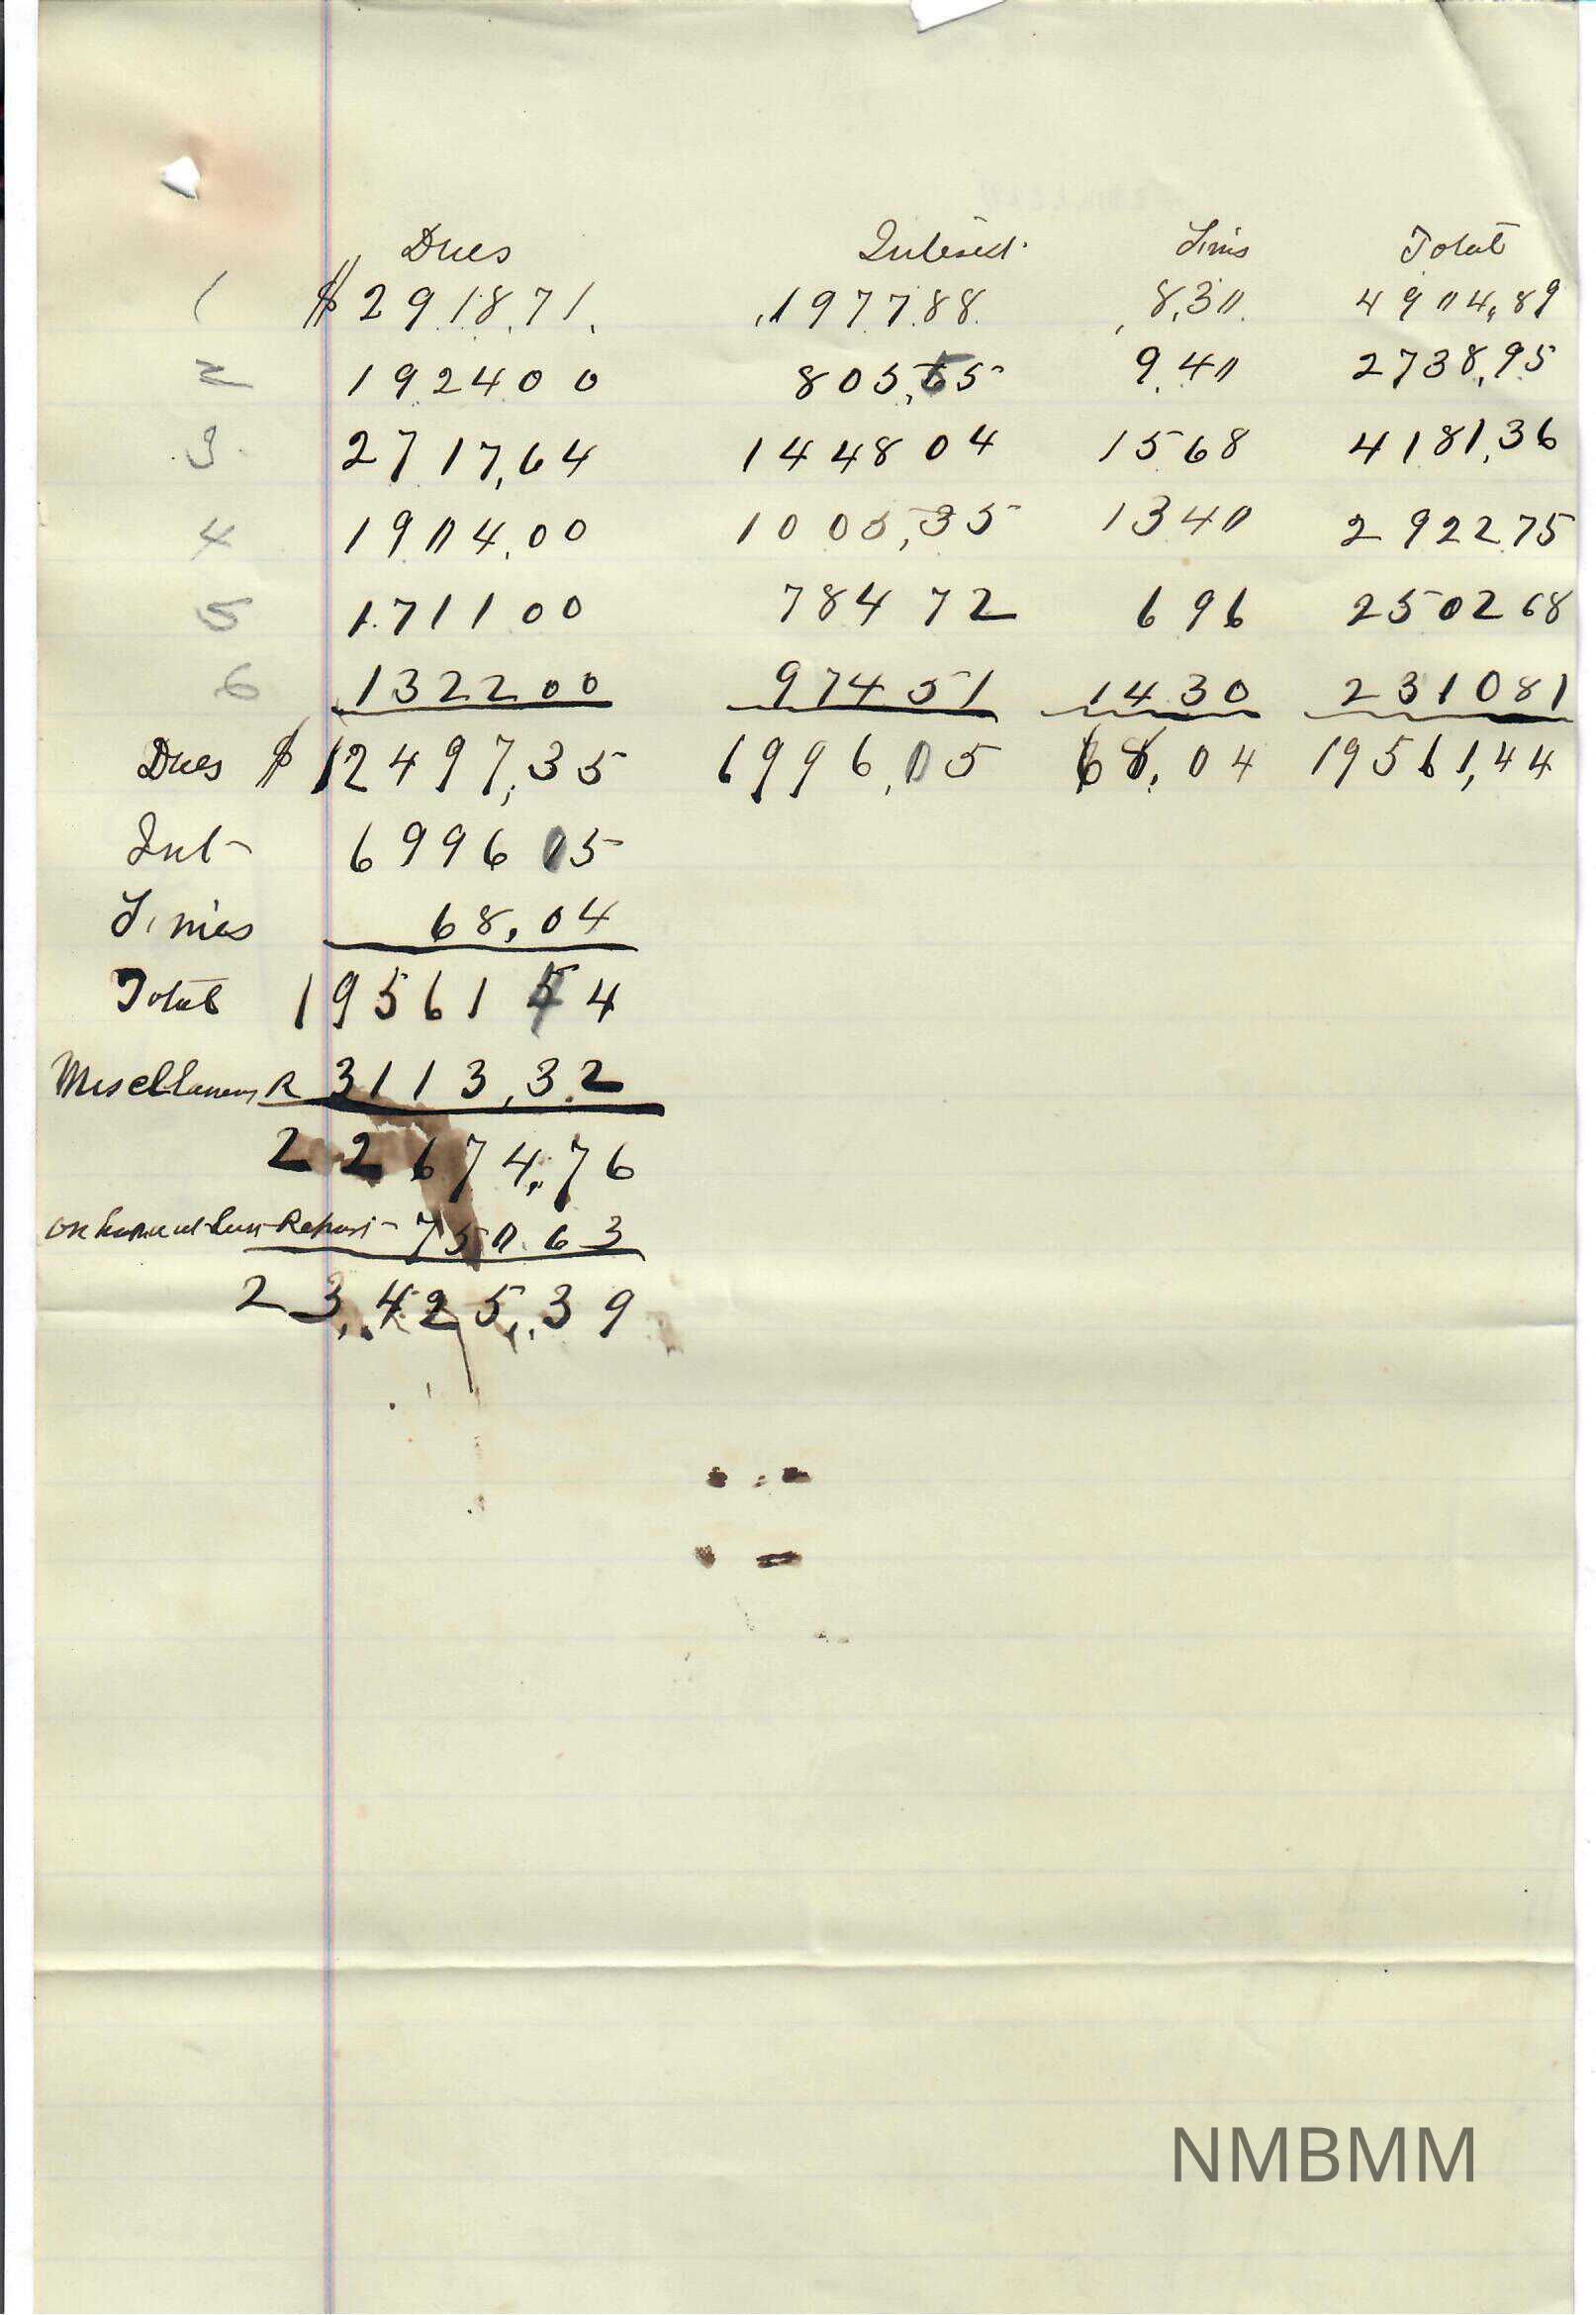 Dues Interest Fines Total
1 $ 2918.71. 1977.88 8.30 4904.89
2 192400 805.55 9.40 2738.95
3 2717,64 144804 1568 4181,36
4 1904.00 1005,35 1340 292275
5 171100 78472 696 250268
6 132200 97451 1430 231081
Dues $ 12497,35 6996,05 68,04 19561,44
Int 699605
Fines 68,04
Total 19561 44
Miscellaneous R 3113,32
22674,76
Last Report 750.63
23,425,39
NMBMM